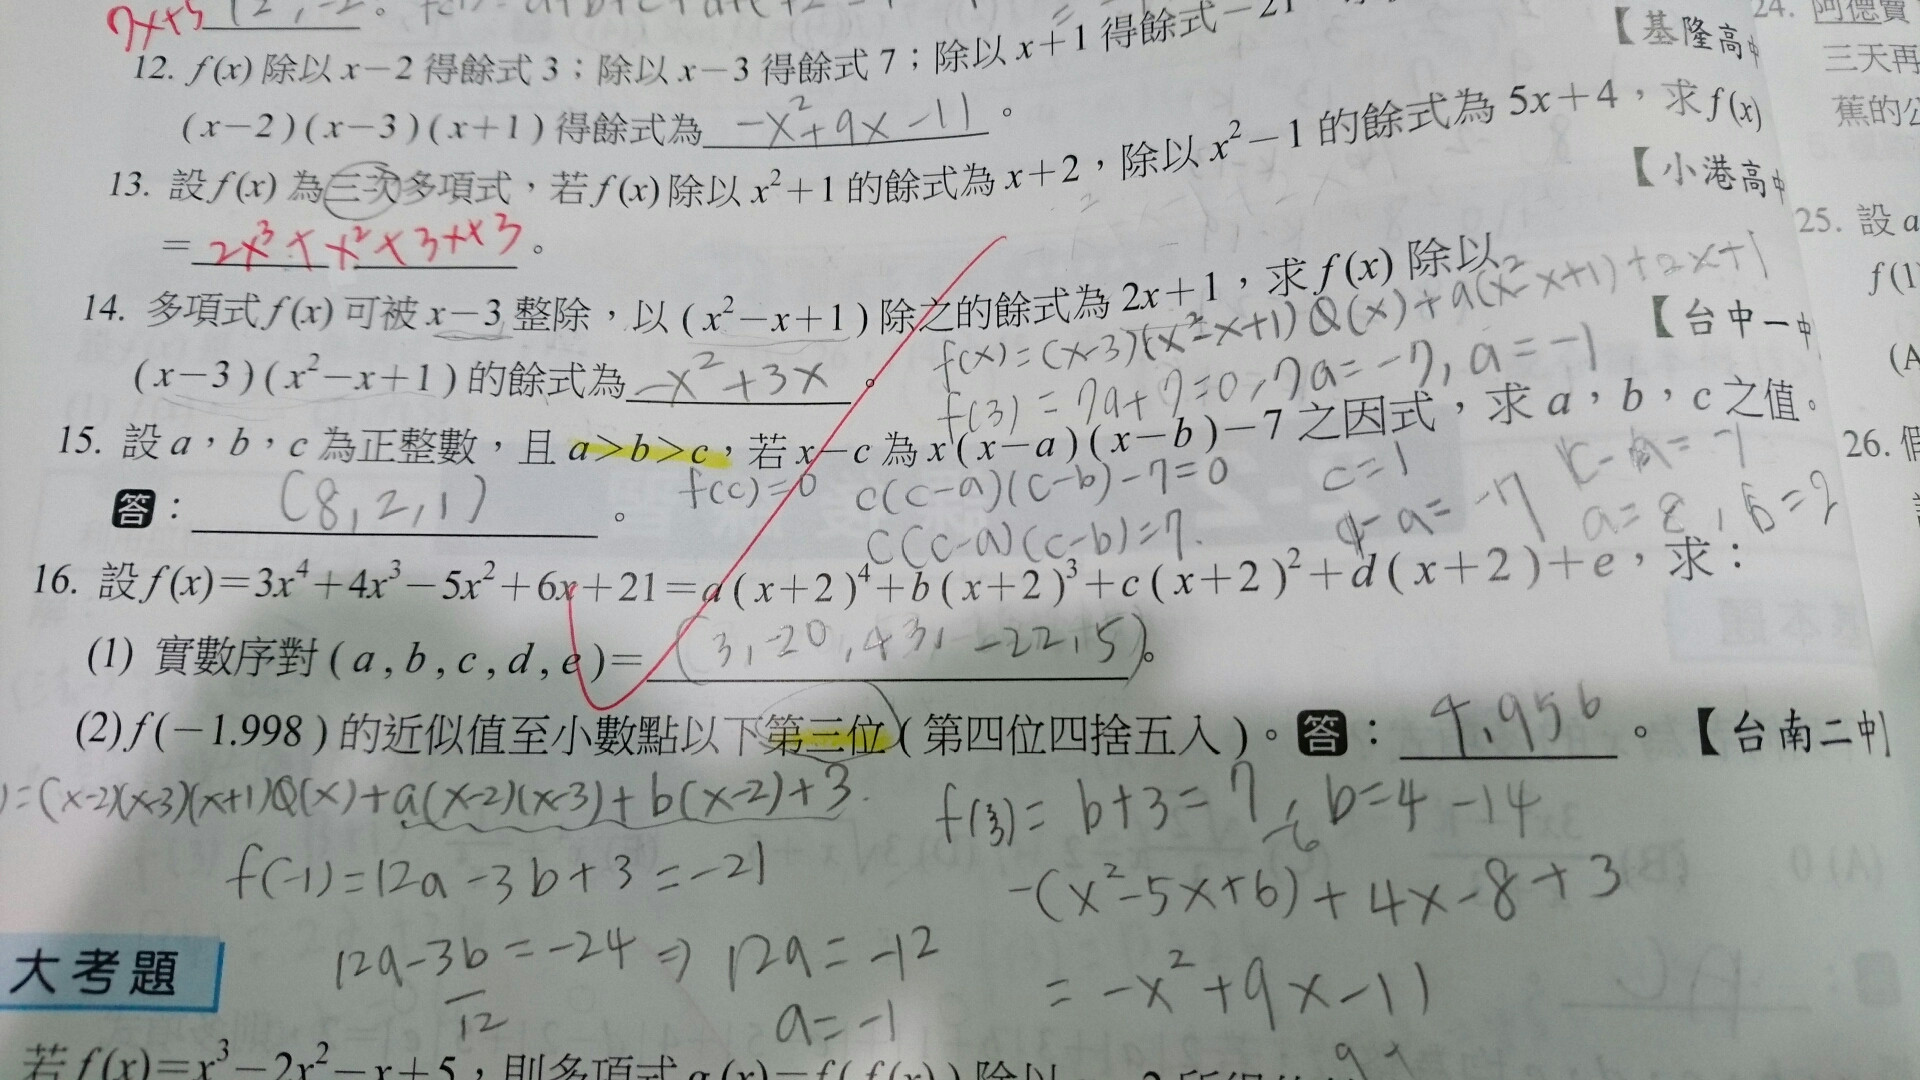 7x+5
12. f(x) 除以 x−2 得餘式 3；除以 x−3 得餘式 7；除以 x+1 得餘式−21
(x−2)(x−3)(x+1) 得餘式為 -x²+9x-11 。
【基隆高中
13. 設 f(x) 為三次多項式，若 f(x) 除以 x²+1 的餘式為 x+2，除以 x²−1 的餘式為 5x+4，求 f(x)
= 2x³+x²+3x+3 。
【小港高中
14. 多項式 f(x) 可被 x−3 整除，以 (x²−x+1) 除之的餘式為 2x+1，求 f(x) 除以
(x−3)(x²−x+1) 的餘式為 -x²+3x 。
【台中一中
f(x)=(x-3)(x²-x+1)Q(x)+a(x²-x+1)+2x+1
f(3)=7a+7=0, 7a=-7, a=-1
15. 設 a，b，c 為正整數，且 a>b>c，若 x−c 為 x(x−a)(x−b)−7 之因式，求 a，b，c 之值。
答：(8,2,1) 。
f(c)=0 c(c-a)(c-b)-7=0
c(c-a)(c-b)=7.
c=1
-a=-7
=-1
a=8, b=2
16. 設 f(x)=3x⁴+4x³−5x²+6x+21=a(x+2)⁴+b(x+2)³+c(x+2)²+d(x+2)+e，求：
(1) 實數序對 (a,b,c,d,e)= (3,-20,43,-22,5)。
(2) f(−1.998) 的近似值至小數點以下第三位 (第四位四捨五入)。答：4.956 。【台南二中】
)=(x-2)(x-3)(x+1)Q(x)+a(x-2)(x-3)+b(x-2)+3.
f(-1)=12a-3b+3=-21
12a-3b=-24 ⇒ 12a=-12
12
a=-1
f(3)=b+3=7, b=4
-14
-6
-(x²-5x+6)+4x-8+3
=-x²+9x-11
大考題
若 f(x)=x³−2x²−x+5，則多項式 g(x)=f(f(x)) 除以
24. 阿德賣
三天再
蕉的公
25. 設 a
f(1)
(A
26. 假